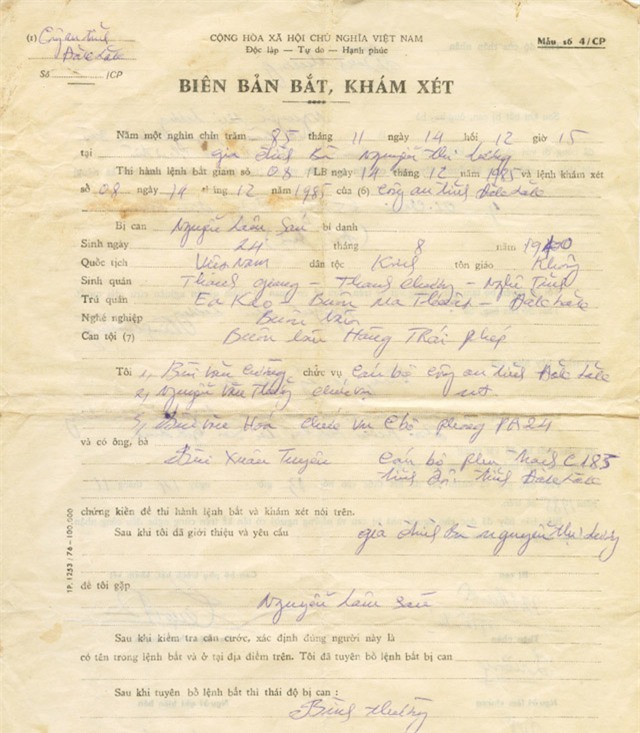 (1) Công an tỉnh
CỘNG HÒA XÃ HỘI CHỦ NGHĨA VIỆT NAM
Mẫu số 4/CP
Đăk Lăk
Độc lập — Tự do — Hạnh phúc
Số /CP
BIÊN BẢN BẮT, KHÁM XÉT
Năm một nghìn chín trăm 85 tháng 11 ngày 14 hồi 12 giờ 15
tại gia đình Bà Nguyễn Thị
Thi hành lệnh bắt giam số 08 /LB ngày 14 tháng 12 năm 1985 và lệnh khám xét
số 08 ngày 14 tháng 12 năm 1985 của (6) Công an tỉnh Đăk Lăk
Bị can Nguyễn Lâm Sáu bí danh
Sinh ngày 24 tháng 8 năm 19
Quốc tịch Việt Nam dân tộc Kinh tôn giáo Không
Sinh quán Thanh Giang - Thanh Chương - Nghệ Tĩnh
Trú quán Ea Kao - Buôn Ma Thuột - Đăk Lăk
Nghề nghiệp Buôn bán
Can tội (7) Buôn lậu Hàng Trái phép
Tôi 1, Bùi Văn Cường chức vụ Cán bộ Công an tỉnh Đăk Lăk
2, Nguyễn Văn chức vụ nt
3, Văn Hoá chức vụ C bộ phòng PA24
và có ông, bà
Bùi Xuân Tuyên Cán bộ C185
tỉnh đội tỉnh Đăk Lăk
chứng kiến để thi hành lệnh bắt và khám xét nói trên.
Sau khi tôi đã giới thiệu và yêu cầu gia đình Bà Nguyễn Thị
để tôi gặp
Nguyễn Lâm Sáu
Sau khi kiểm tra căn cước, xác định đúng người này là
có tên trong lệnh bắt và ở tại địa điểm trên. Tôi đã tuyên bố lệnh bắt bị can
Sau khi tuyên bố lệnh bắt thì thái độ bị can :
Bình thường
TP. 1253/76-100.000